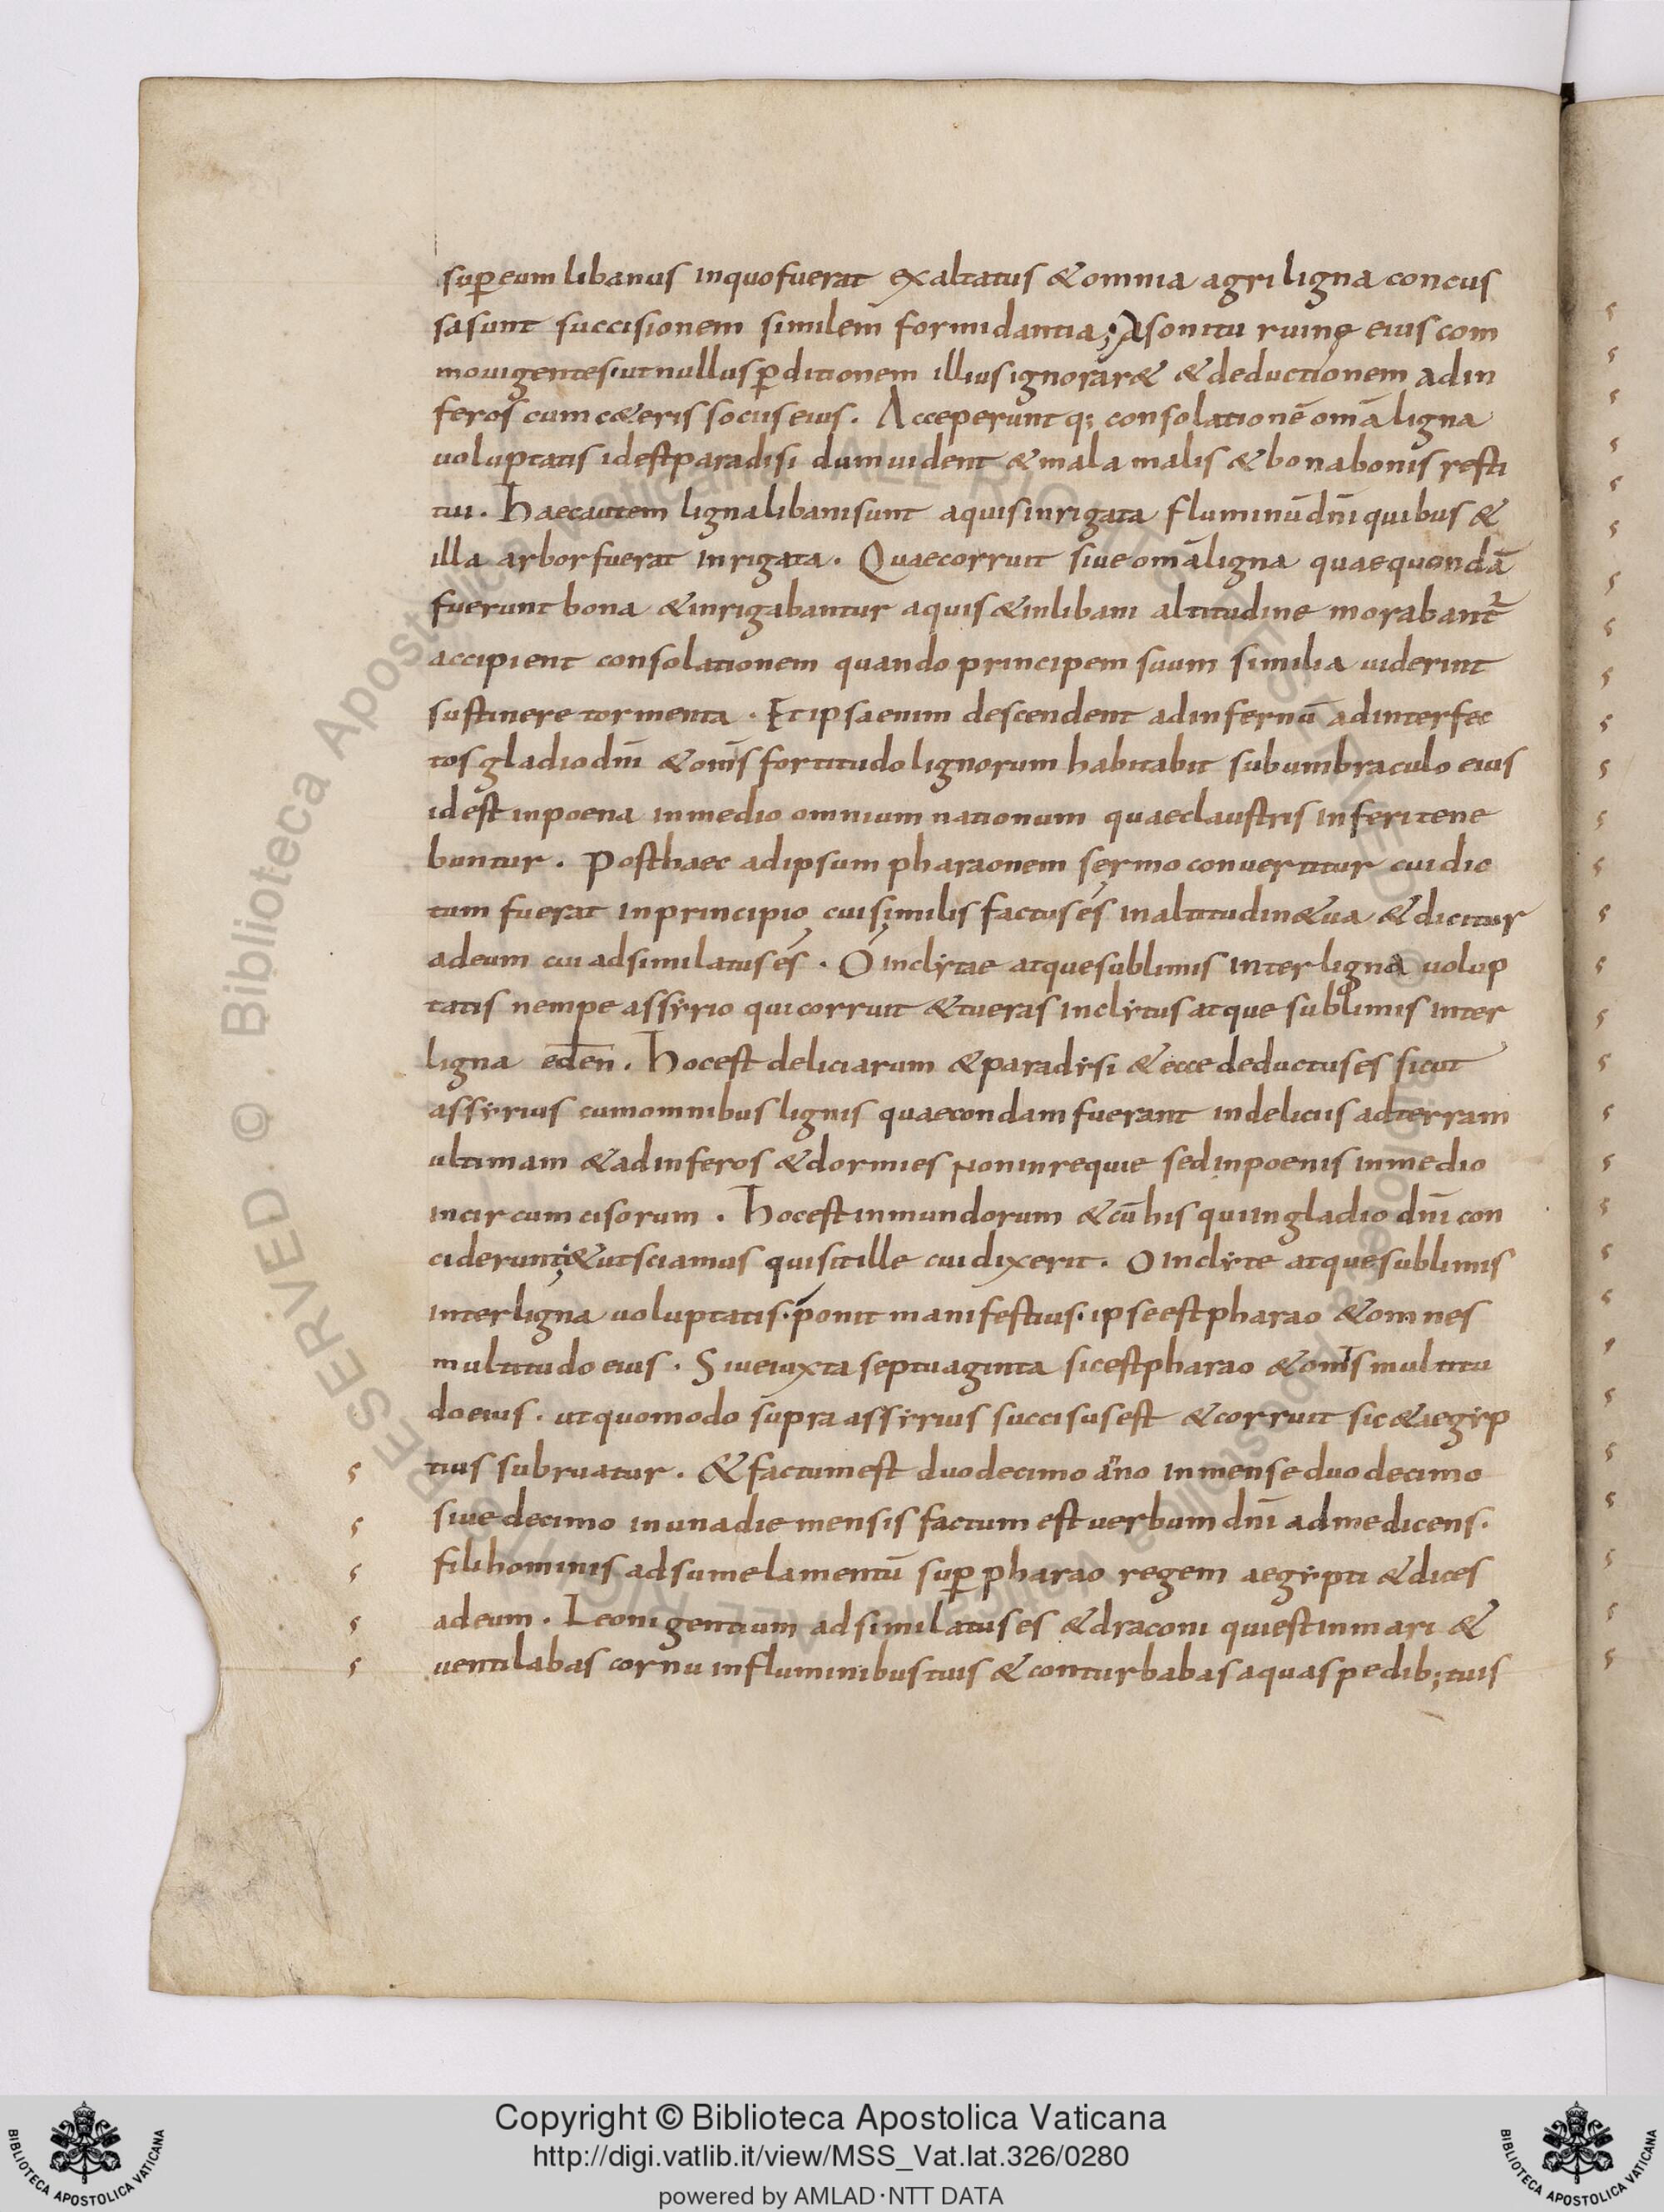 sup̱ eum libanus inquo fuerat exaltatus & omnia agri ligna concus
sa sunt succisionem similem formidantia; A sonitu ruinę eius com
moui gentes· ut nullus p̱ditionem illius ignorar& & deductionem ad in
feros cum c&eris sociis eius. Acceperuntq; consolationē om̄a ligna
uoluptatis id est paradisi dum uident & mala malis & bona bonis resti
tui. Haec autem ligna libani sunt aquis inrigata fluminū dn̄i quibus &
illa arbor fuerat inrigata. Quae corruit siue om̄a ligna quae quondā
fuerunt bona & inrigabantur aquis & in libani altitudine morabant̄
accipient consolationem quando principem suum similia uiderint
sustinere tormenta. Et ipsa enim descendent ad infernū ad interfec
tos gladio dn̄i & om̄s fortitudo lignorum habitabit sub umbraculo eius
id est in poena in medio omnium nationum quae claustris inferi tene
buntur. Post haec ad ipsum pharaonem sermo conuertitur cui dic
tum fuerat in principio cui similis factus és in altitudin& ua & dicitur
ad eum cui adsimilatus és. Ó inclytae atque sublimis inter ligna uolup
tatis nempe assyrio qui corruit & tu eras inclytus atque sublimis inter
ligna eden. Hoc est deliciarum & paradysi & ecce deductus es sicut
assyrius cum omnibus lignis quae condam fuerant in deliciis ad terram
ultimam & ad inferos & dormies non in requie sed in poenis in medio
incircumcisorum. Hoc est inmundorum & cū his qui in gladio dn̄i con
ciderunt; & ut sciamus qui sit ille cui dixerit. O inclyte atque sublimis
inter ligna uoluptatis· ponit manifestius· ipse est pharao & omnes
multitudo eius. Siue iuxta septuaginta sic est pharao & om̄is multitu
do eius. ut quomodo supra assyrius succisus est & corruit sic & aegyp
tius subruatur. & factum est duodecimo anno in mense duodecimo
siue decimo in una die mensis factum est uerbum dn̄i ad me dicens·
fili hominis adsume lamentū sup̱ pharao regem aegypti & dices
ad eum. Leoni gentium adsimilatus es & draconi qui est in mari &
uentilabas cornu in fluminibus tuis & conturbabas aquas pedib; tuis
Copyright © Biblioteca Apostolica Vaticana
http://digi.vatlib.it/view/MSS_Vat.lat.326/0280
powered by AMLAD·NTT DATA
BIBLIOTECA APOSTOLICA VATICANA
BIBLIOTECA APOSTOLICA VATICANA